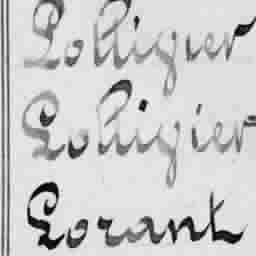 Lolligier
Lolligier
Lorant